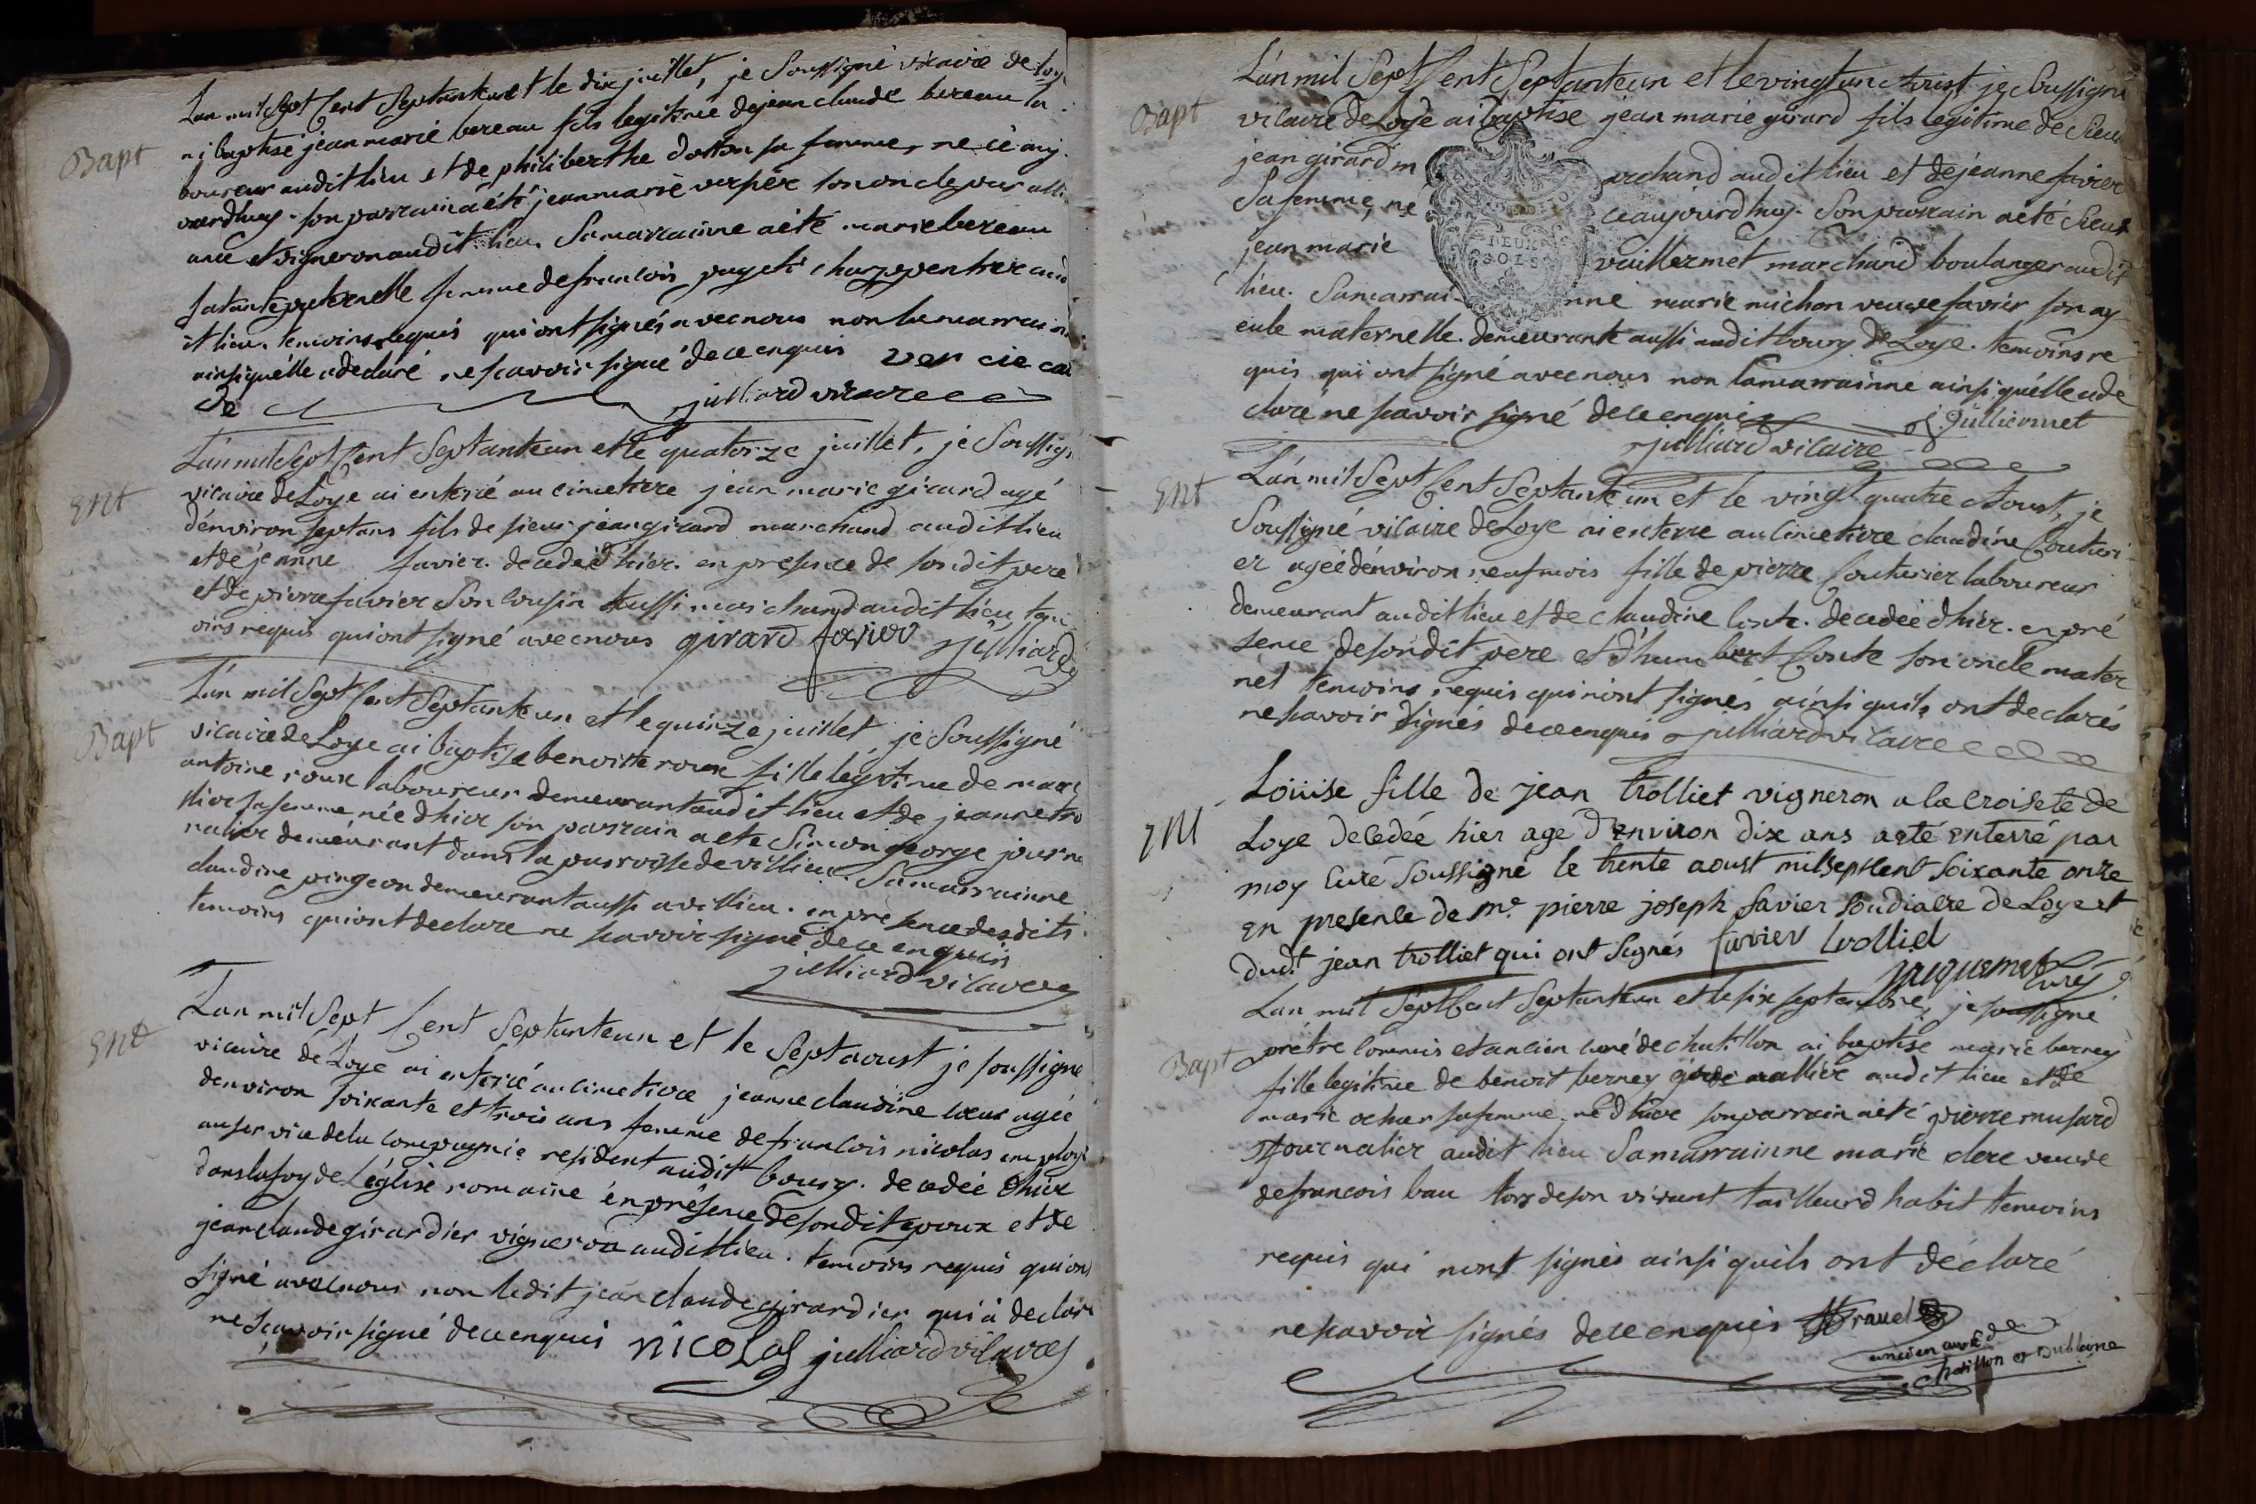 Bapt
L'an mil Sept Cent Septanteun et le dix juillet, je Soussigné vicaire de Loye
ai baptisé jean marie bereau fils legitime de jean claude bereau la
boureur audit lieu et de philiberthe dotton sa femme, né ce auj
ourdhuy. son parrain a été jean marie verpér son oncle par alli
ance et vigneron audit lieu. Sa marrainne a été marie bereau
sa tante paternelle femme de francois pageti charppentier aud
it lieu. temoins requis qui ont signés avec nous non la marrainne
ainsi quélle a declaré ne scavoir signé de ce enquis
de julliard vicaire
Ent
L'an mil Sept Cent Septanteun et le quatorze juillet, je Soussigné
vicaire de Loye ai enterré au cimetiere jean marie girard agé
dénviron sept ans fils de sieur jean girard marchand audit lieu
et de jeanne favier. decedé d'hier. en presence de son dit pere
et de pierre favier Son Cousin aussi marchand audit lieu, tem
oins requis qui ont signé avec nous girard favier julliard
Bapt
L'an mil Sept Cent Septanteun et le quinze juillet, je Soussigné
vicaire de Loye ai baptisé benoitte roux fille legitime de marc
antoine roux laboureur demeurant audit lieu et de jeanne tro
llier sa femme née d'hier son parrain a ete Simon george journa
nalier demeurant dans la parroisse de villieu. Sa marrainne
claudine pingeon demeurant aussi a villieu. en présence desdits
temoins qui ont declaré ne scavoir signé de ce enquis
julliard vicaire
Ent
L'an mil Sept Cent Septanteun et le Sept aoust je soussigné
vicaire de Loye ai enterré au cimetiere jeanne claudine cœur agée
denviron soixante et trois ans femme de francois nicolas employé
au service de la compagnie resident audit bourg. decedée d'hier
dans la foy de L'église romaine én présence de son dit epoux et de
jean claude girardier vigneron audit lieu. temoins requis qui ont
signé avec nous non ledit jean claude girardier qui a declaré
ne scavoir signé de ce enquis nicolas julliard vicaire
Bapt
L'an mil Sept Cent Septanteun et le vingt un Aoust, je Soussigné
vicaire de Loye ai baptisé jean marie girard fils legitime de Sieur
jean girard marchand audit lieu et de jeanne favier
Sa femme, né ce aujourdhuy. Son parrain a eté Sieur
jean marie vuillermet marchand boulanger audit
lieu. Sa marrainne marie michon veuve favier son ay
eule maternelle. demeurante aussi audit bourg de Loye. temoins re
quis qui ont signé avec nous non la marrainne ainsi quélle a de
claré ne scavoir signé de ce enquis
julliard vicaire
DEUX
SOLS
Ent
L'an mil Sept Cent Septanteun et le vingt quatre Aoust, je
Soussigné vicaire de Loye ai enterré au Cimetiere claudine Couturi
er agéé dénviron neuf mois fille de pierre Couturier laboureur
demeurant audit lieu et de claudine Conte. decedéé d'hier. en pré
sence de son dit père et d'humbert Conte son oncle mater
nel temoins requis qui n'ont signés ainsi quils ont declarés
ne scavoir signés de ce enquis julliard vicaire
Ent
Louise fille de jean trolliet vigneron a la croisete de
Loye decedéé hier agé d'environ dix ans a eté enterré par
moy Curé soussigné le trente aoust mil sept cent soixante onze
en presence de me. pierre joseph favier soudiacre de Loye et
dudt. jean trolliet qui ont signés favier trolliet
jacquemet Curé
Bapt
L'an mil Sept Cent Septanteun et le six septembre, je soussigné
prétre Commis et ancien curé de chatillon ai baptisé marie berney
fille legitime de benoit berney audit lieu et de
marie sa femme, né d'hier son parrain a été pierre musard
journalier audit lieu Sa marrainne marie clere veuve
de francois bau lors de son vivant tailleur d habit temoins
requis qui n'ont signés ainsi quils ont déclaré
ne scavoir signés de ce enquis
ancien curé de
chatillon